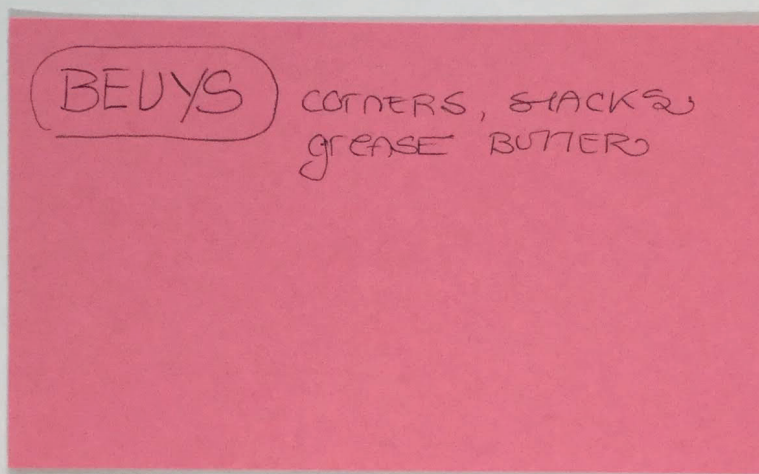 BEUYS corners, STACKS
grease BUTTER